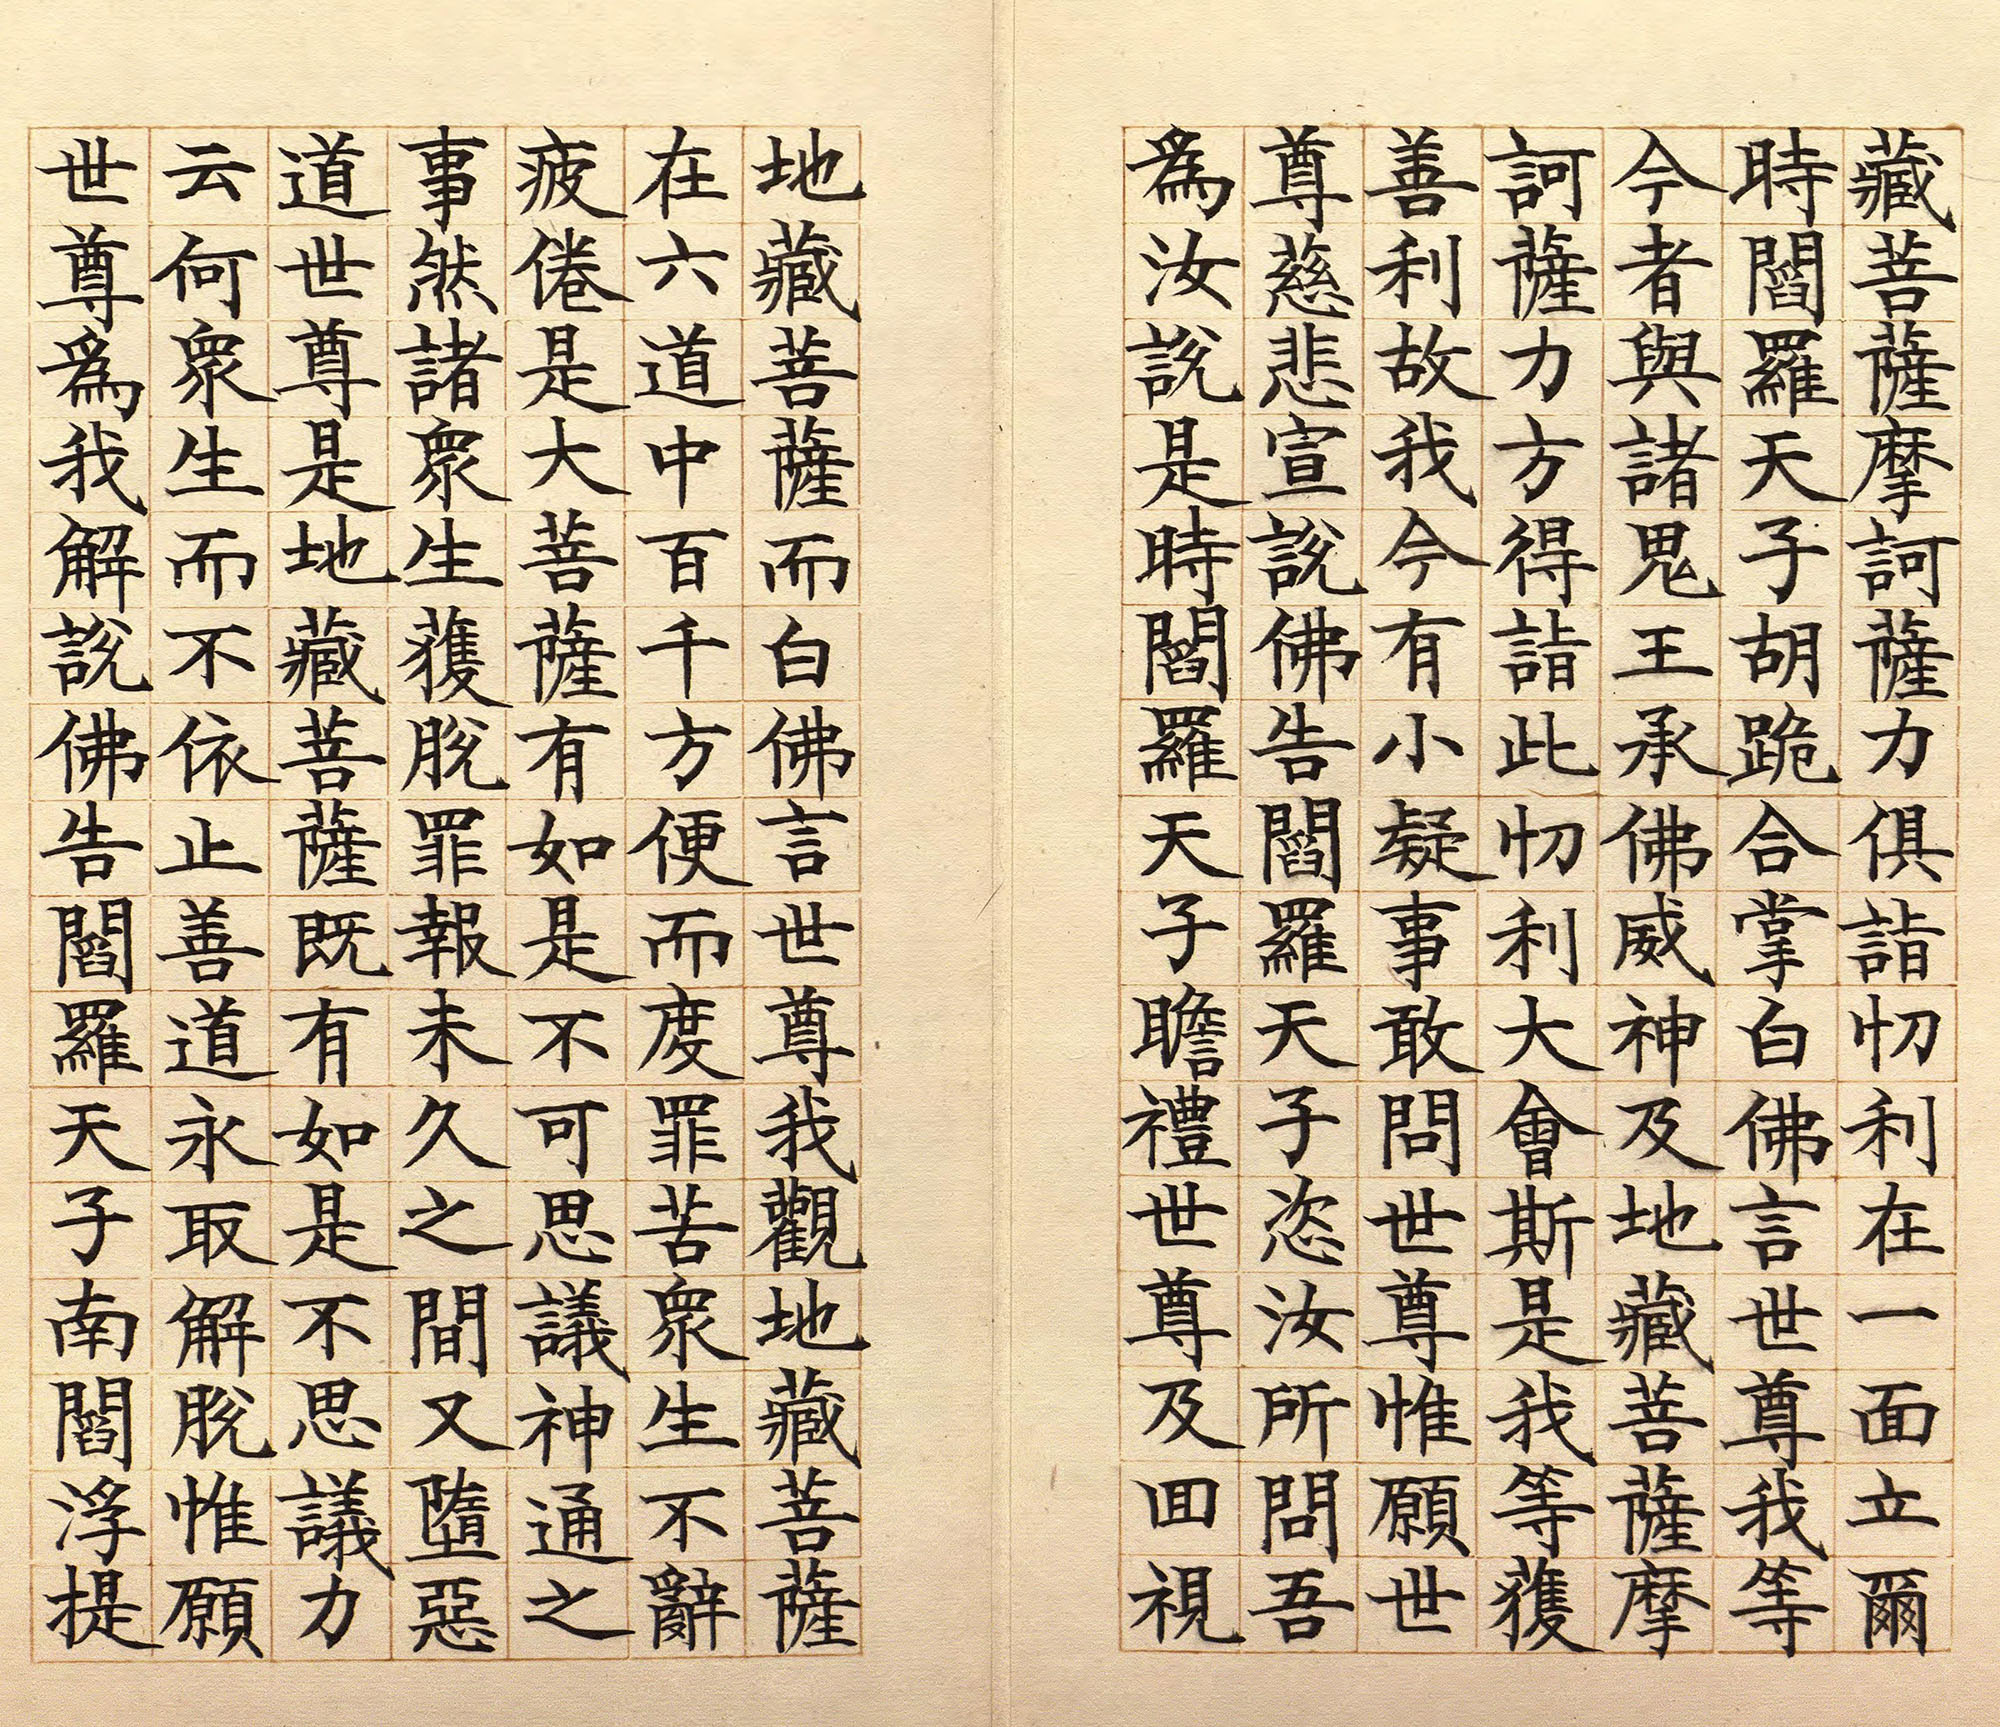 藏菩薩摩訶薩力俱詣忉利在一面立爾
時閻羅天子胡跪合掌白佛言世尊我等
今者與諸鬼王承佛威神及地藏菩薩摩
訶薩力方得詣此忉利大會斯是我等獲
善利故我今有小疑事敢問世尊惟願世
尊慈悲宣說佛告閻羅天子恣汝所問吾
爲汝說是時閻羅天子瞻禮世尊及回視
地藏菩薩而白佛言世尊我觀地藏菩薩
在六道中百千方便而度罪苦衆生不辭
疲倦是大菩薩有如是不可思議神通之
事然諸衆生獲脫罪報未久之間又墮惡
道世尊是地藏菩薩既有如是不思議力
云何衆生而不依止善道永取解脫惟願
世尊爲我解說佛告閻羅天子南閻浮提